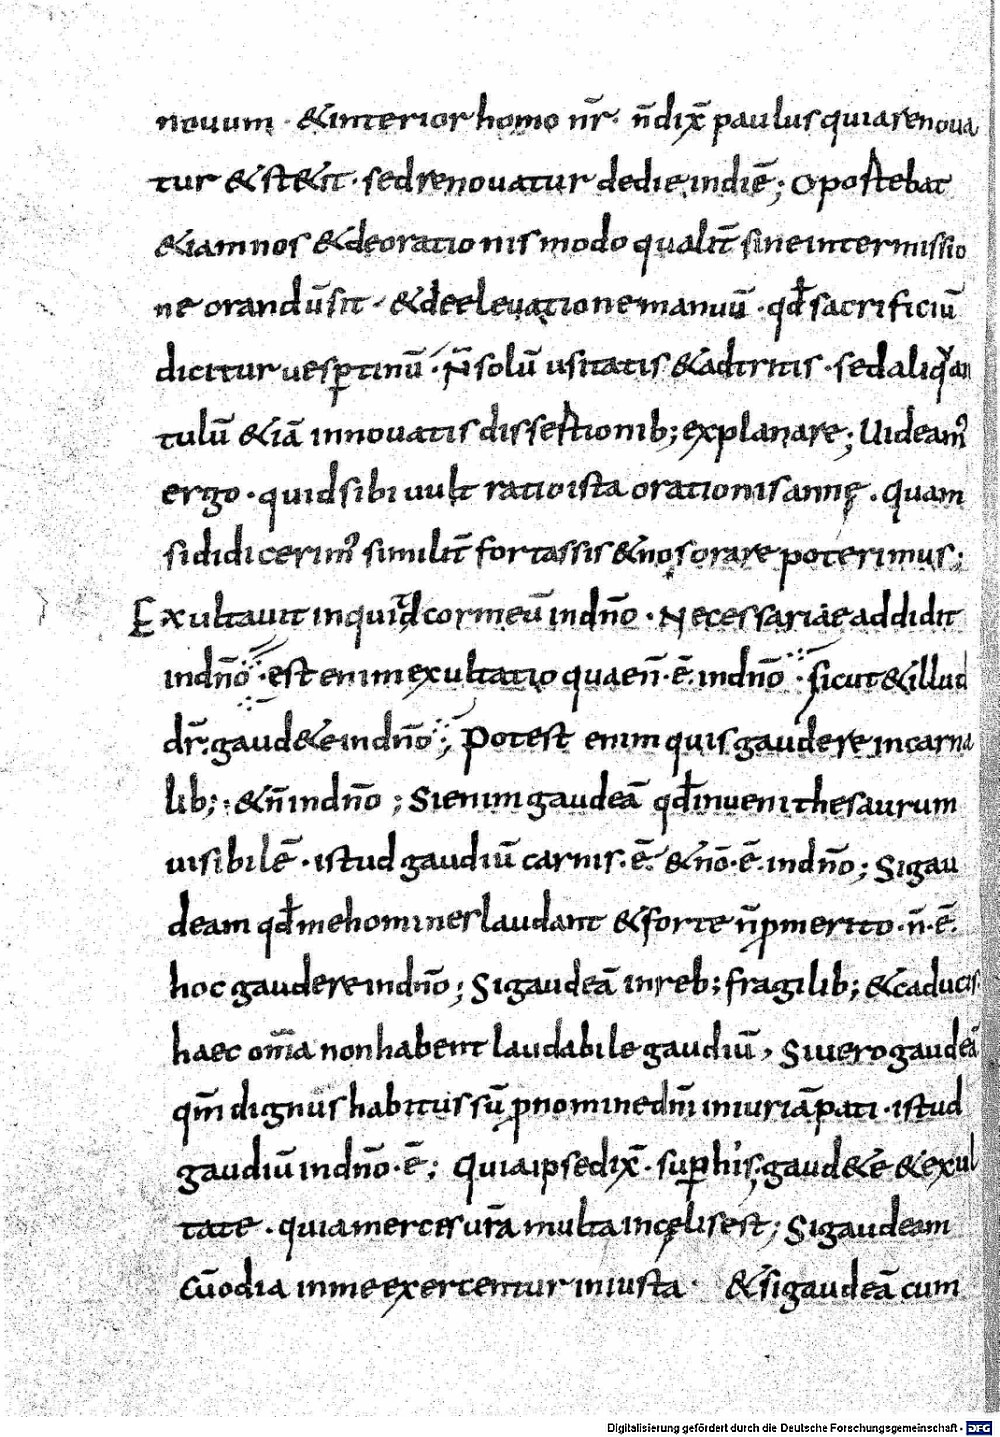 novum · & interior homo nr̄ · n̄ dix̄ paulus quia renova
tur & st&it · sed renovatur de die in diē ; Oportebat
& iam nos & de orationis modo qualit̄ sine intermissio
ne orandū sit · & de elevatione manuū · qd̄ sacrificiū
dicitur vespertinū · N̄ solū usitatis & adtritis · sed aliqan
tulū & iā innovatis dissertionib; explanare ; Videam᾽
ergo · quid sibi vult ratio ista orationis annę · Quam
si didicerim᾽ similit̄ fortassis & nos orare poterimus ;
Exultavit inquid cor meū in dn̄o · Necessariae addidit
in dn̄o · est enim exultatio quae n̄ · ē · in dn̄o · sicut & illud
dr̄ · gaud&e in dn̄o ; Potest enim quis gaudere in carna
lib; · & n̄ in dn̄o ; Si enim gaudeā qd̄ inveni thesaurum
visibilē · istud gaudiū carnis · ē · & nō · ē · in dn̄o ; Si gau
deam qd̄ me homines laudant & forte n̄ p merito · n̄ · ē ·
hoc gaudere in dn̄o ; Si gaudeā in reb; fragilib; & caducis
haec om̄ia non habent laudabile gaudiū , Si vero gaudeā
qm̄ dignus habitus sū p nomine dn̄i iniuriā pati · istud
gaudiū in dn̄o · ē ; Quia ipse dix̄ · sup his · gaud&e & exul
tate · quia merces vr̄a multa in cęlis est ; Si gaudeam
cū odia in me exercentur iniusta · & si gaudeā cum
Digitalisierung gefördert durch die Deutsche Forschungsgemeinschaft - DFG